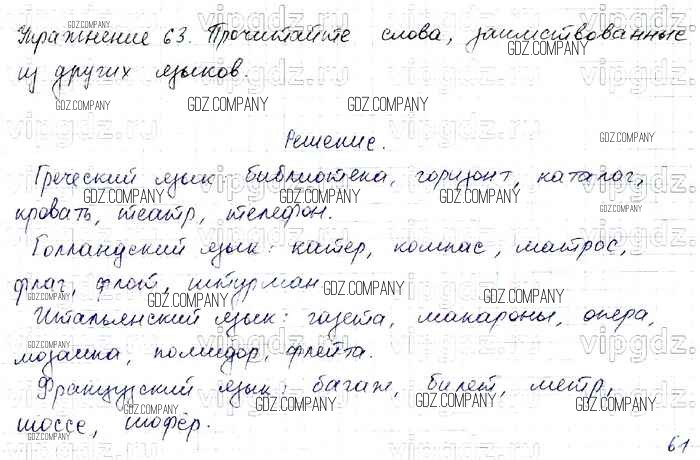 Упражнение 63. Прочитайте слова, заимствованные
из других языков.
Решение.
Греческий язык: библиотека, горизонт, каталог,
кровать, театр, телефон.
Голландский язык: катер, компас, матрос,
флаг, флот, штурман
Итальянский язык: газета, макароны, опера,
мозаика, помидор, флейта.
Французский язык: багаж, билет, метр,
шоссе, шофёр.
61
GDZ.COMPANY
vipgdz.ru